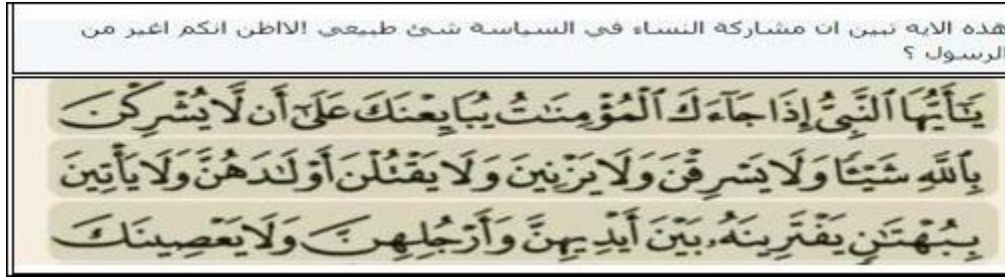 هذه الايه تبين ان مشاركة النساء في السياسة شئ طبيعي !لااظن انكم اغير من
الرسول ؟
يَـٰٓأَيُّهَا ٱلنَّبِىُّ إِذَا جَآءَكَ ٱلْمُؤْمِنَـٰتُ يُبَايِعْنَكَ عَلَىٰٓ أَن لَّا يُشْرِكْنَ
بِٱللَّهِ شَيْـًٔا وَلَا يَسْرِقْنَ وَلَا يَزْنِينَ وَلَا يَقْتُلْنَ أَوْلَـٰدَهُنَّ وَلَا يَأْتِينَ
بِبُهْتَـٰنٍ يَفْتَرِينَهُۥ بَيْنَ أَيْدِيهِنَّ وَأَرْجُلِهِنَّ وَلَا يَعْصِينَكَ